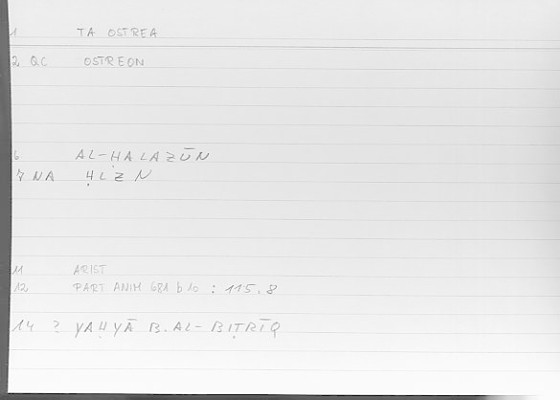 1 TA OSTREA
2 QC OSTREON
6 AL-ḤALAZŪN
7 NA ḤLZN
11 ARIST
12 PART ANIM 681 b 10 : 115.8
14 ? YAḤYĀ B. AL-BIṬRĪQ